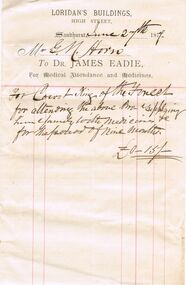 LORIDAN'S BUILDINGS,
HIGH STREET,
Sandhurst June 27th 187
Mr G M Horne
To DR. JAMES EADIE,
For Medical Attendance and Medicines,
For Court King of the Forest
for attending the above Bro & supplying
him & family with Medicine &c
for the period of Nine Months
£0-15/-